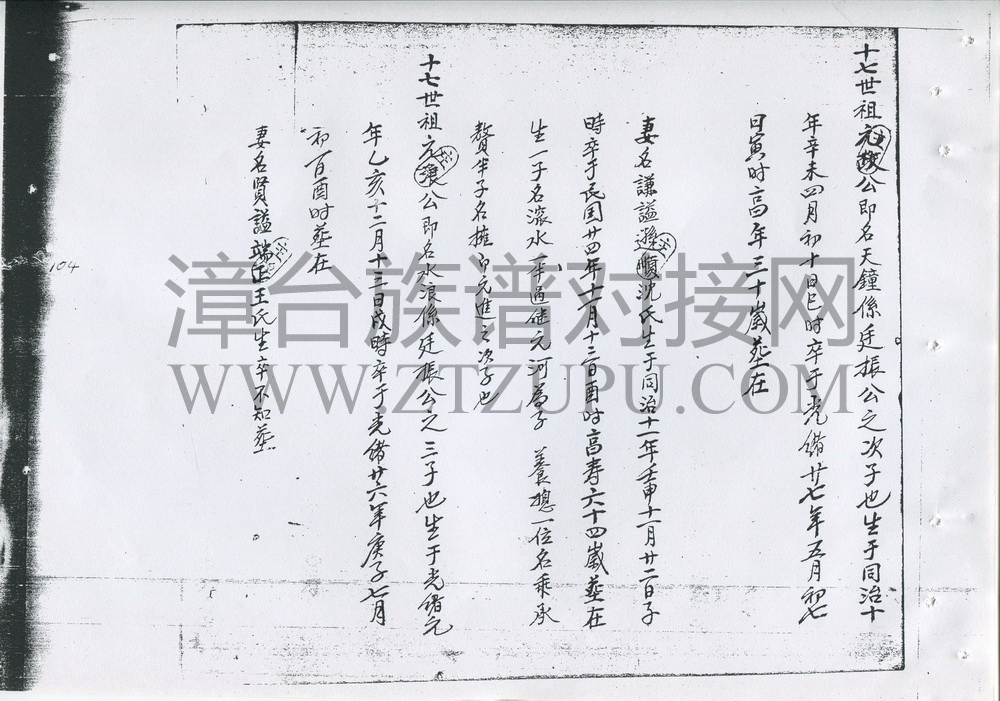 十七世祖元公即名天鐘係廷振公之次子也生于同治十
年辛未四月初十日巳时卒于光緒廿七年五月初七
日寅时高年三十歲塟在
妻名謙謚遜順沈氏生于同治十一年壬申十一月廿二日子
時卒于民国廿四年十一月十三日酉时高寿六十四歲塟在
生一子名滚水一半過継元河為子 養媳一位名乖承
贅半子名推即元進之次子也
十七世祖元讓公即名水浪係廷振公之三子也生于光绪元
年乙亥十二月十三日戌時卒于光緒廿六年庚子七月
初一日酉时塟在
妻名賢謚端正王氏生卒不知塟
104
漳台族谱对接网
WWW.ZTZUPU.COM